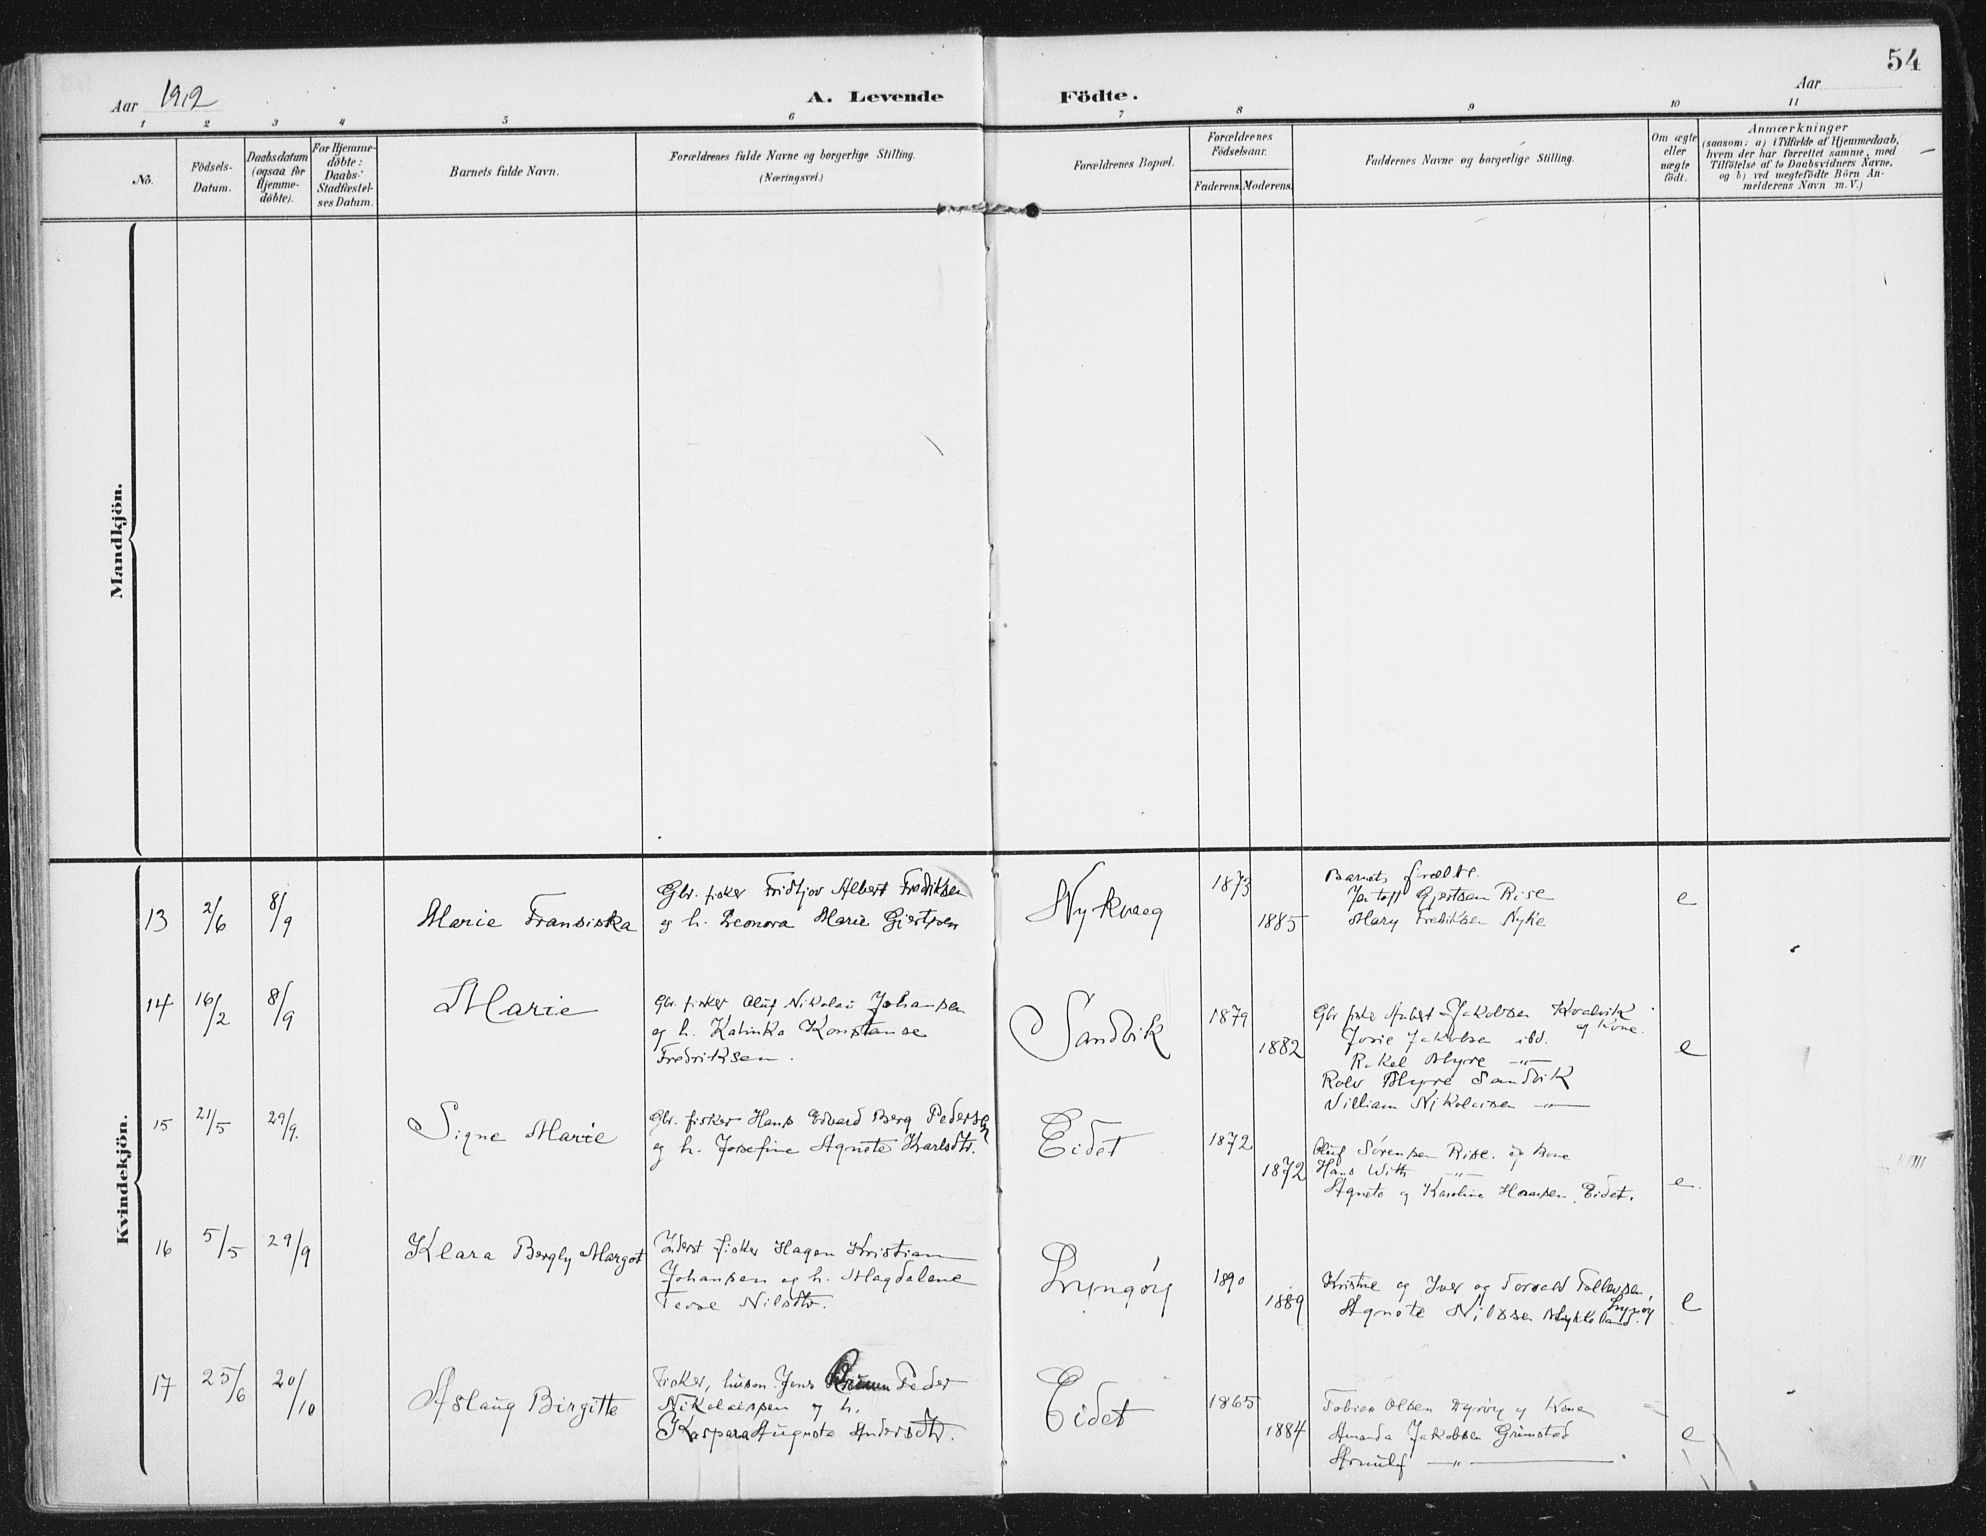 54
Aar 1912
A. Levende Födte.
Aar
1 2 3 4 5 6 7 8 9 10 11
No.
Födsels-
Datum.
Daabsdatum
(ogsaa for
Hjemme-
döbte).
For Hjemme-
döbte:
Daabs-
Stadfæstel-
ses Datum.
Barnets fulde Navn.
Forældrenes fulde Navne og borgerlige Stilling.
(Næringsvei.)
Forældrenes Bopæl.
Forældrenes
Födselsaar.
Faderens. Moderens.
Faddernes Navne og borgerlige Stilling.
Om ægte
eller
uægte
födt.
Anmærkninger
(saasom: a) i Tilfælde af Hjemmedaab,
hvem der har forrettet samme, med
Tilföielse af to Daabsvidners Navne,
og b) ved uægtefödte Börn An-
melderens Navn m. V.)
Mandkjön.
Kvindekjön.
13 2/6 8/9 Marie Fransiska
Gbr. fisker Fridtjov Albert Fredriksen
og h. Leonora Marie Gjertsen
Nykvaag
1873
1885
Barnets forældre.
Gjertsen Rise
Mary Fredriksen Nyke
e
14 16/2 8/9 Marie
Gbr. fisker Oluf Nikolai Johansen
og h. Katinka Konstanse
Fredriksen.
Sandvik
1879
1882
Gbr fisker Jakobsen Kvalvik
og kone.
Josie Jakobsen ibd.
Rakel Myrre —"—
Rolv Myrre Sandvik
William Nikolaisen —"—
e
15 21/5 29/9. Signe Marie
Gbr. fisker Hans Edvard Berg Pedersen
og h. Josefine Agnete Karlsdtr.
Eidet
1872
1872
Oluf Sörensen Rise. og kone
Hans With —"—
Agnete og Karoline Hansen Eidet.
e.
16 5/5 29/9 Klara Bergly Margot
Inderst fisker Hagen Kristian
Johansen og h. Magdalene
Nilsdtr.
Lyngöy
1890
1889
Kristine og Iver og Torvald Tollevsen,
Lyngöy
Agnete Nilssen
e
17 25/6 20/10 Aslaug Birgitte
Fisker, husm. Jens Peder
Nikolaissen og h.
Kaspara Augusta Andersdtr.
Eidet
1865
1884
Tobias Olsen Dyröy og Kone
Amanda Jakobsen Grimstad
Arnulf —"—
e